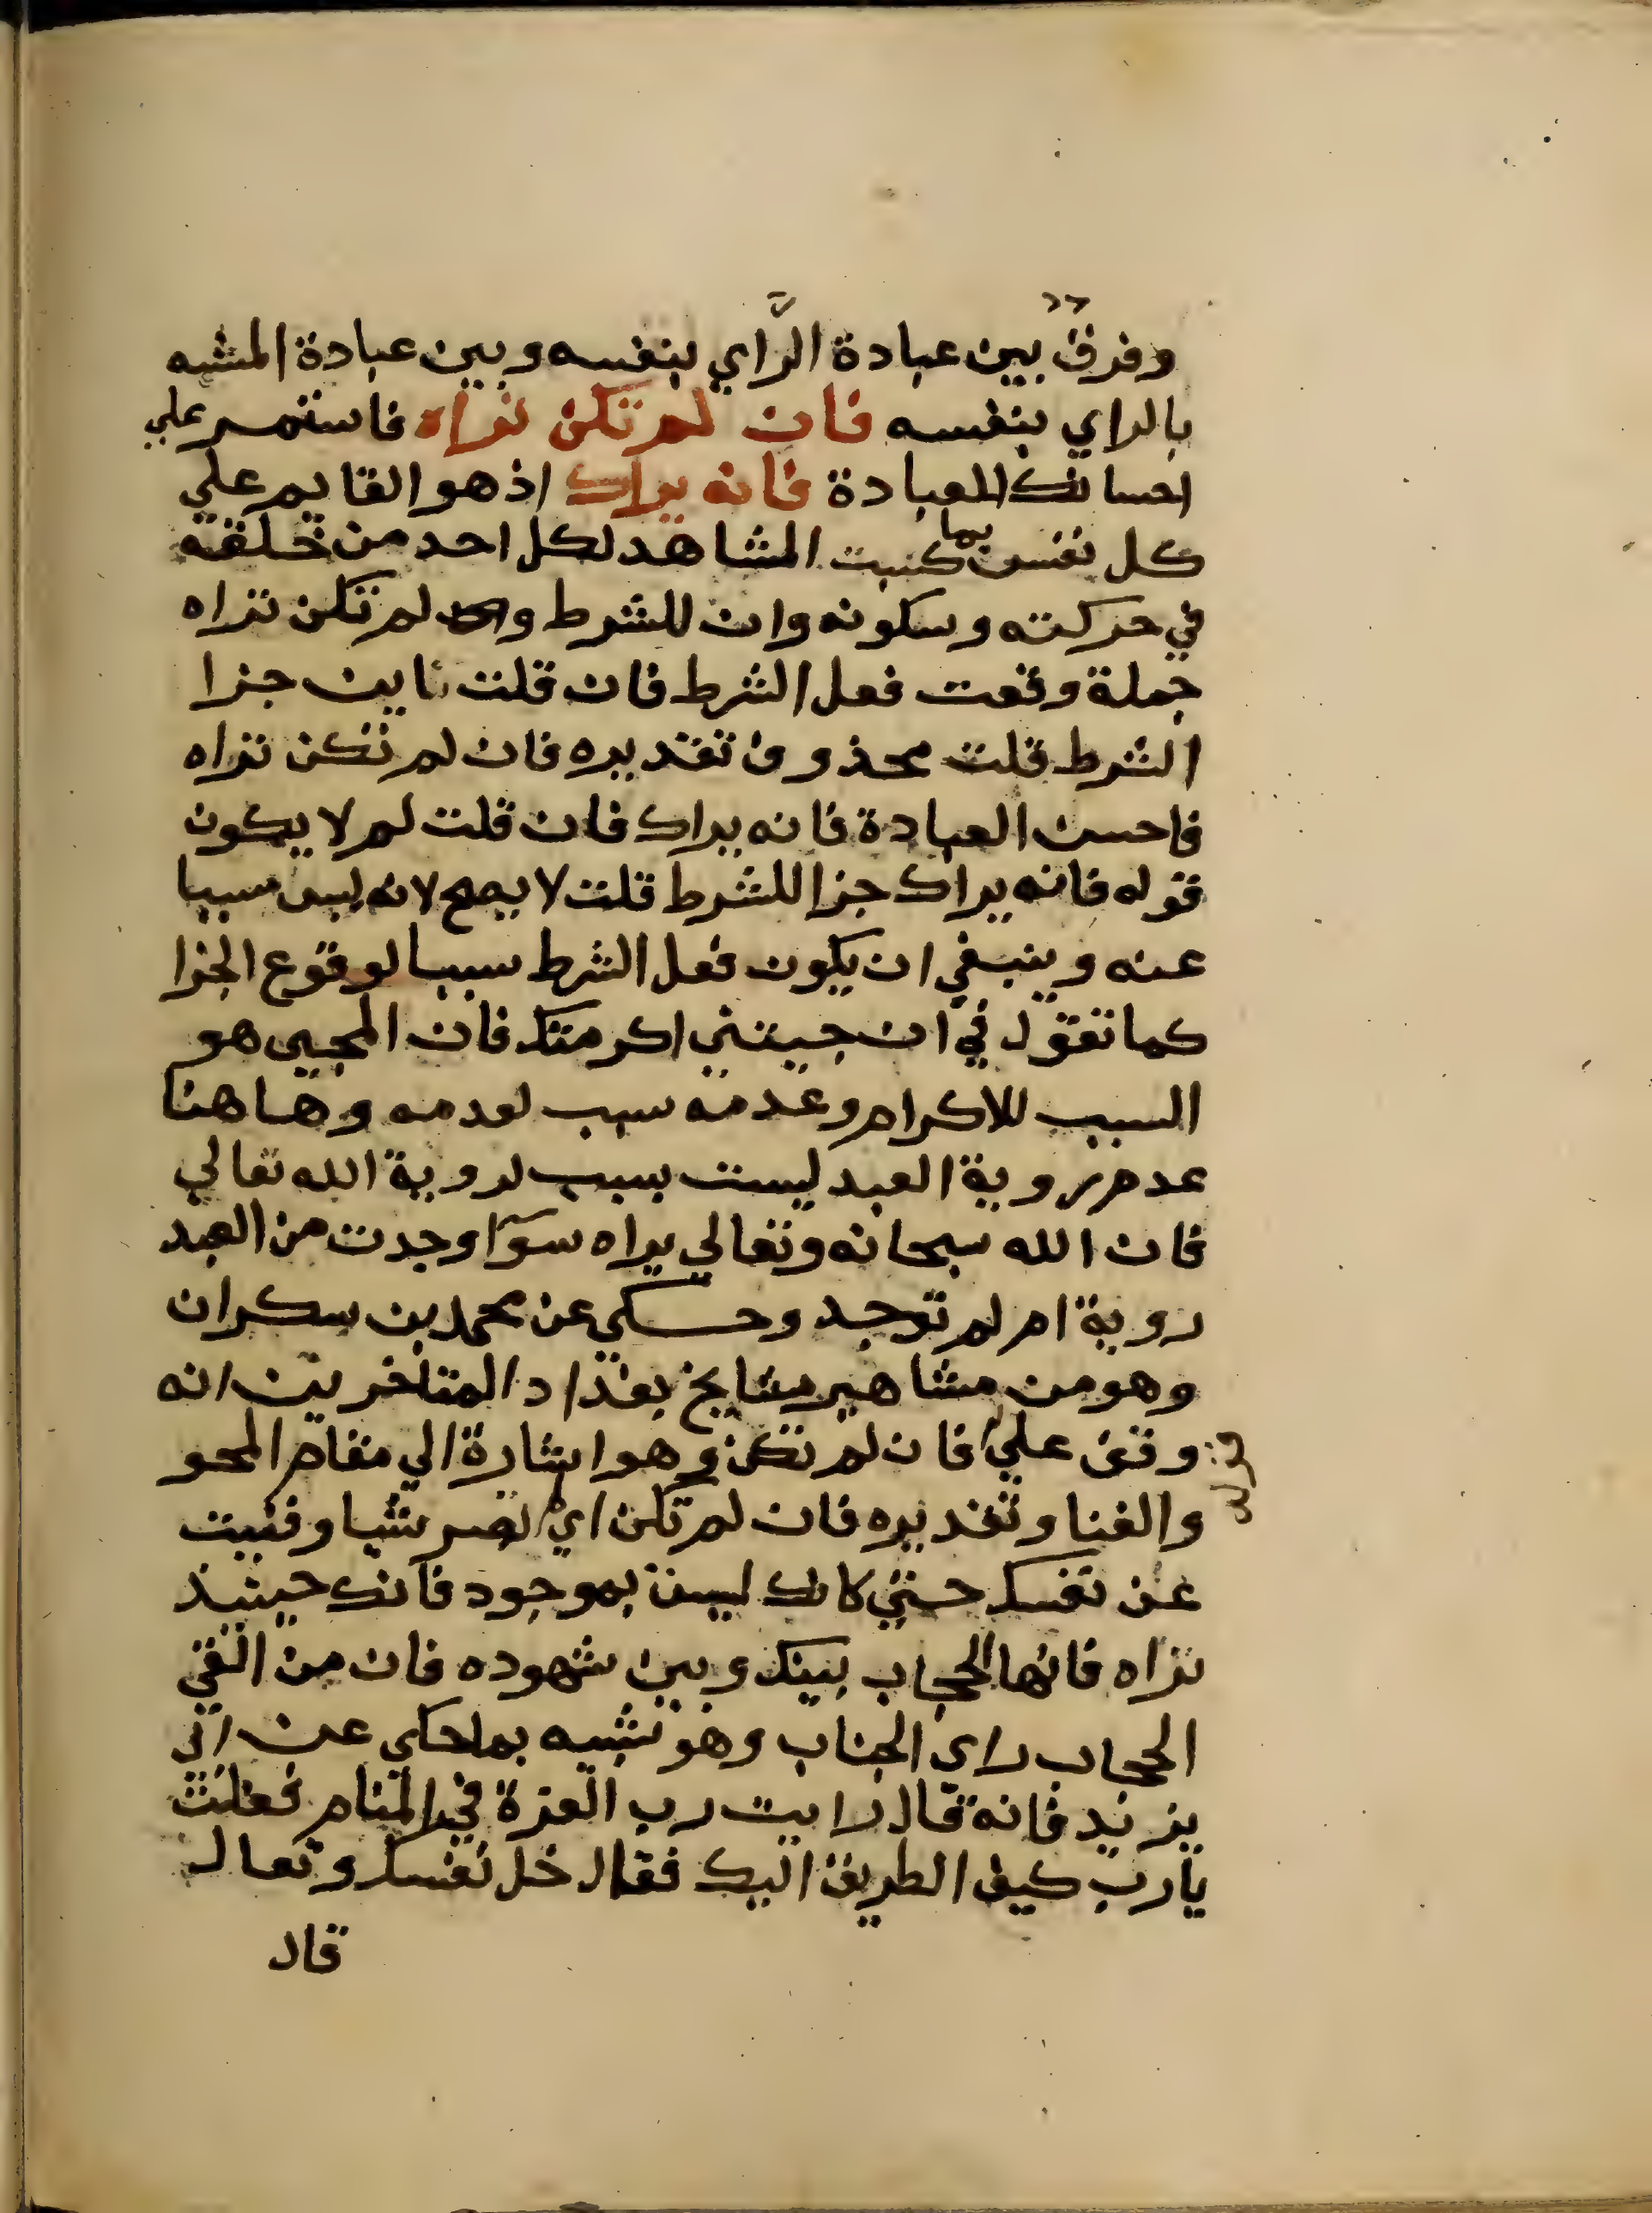 وفرق بين عبادة الرَّاي بنفسه وبين عبادة المشبه
بالراي بنفسه فان لم تكن تراه فاستمر علي
احسانك العبادة فانه يراك اذ هو القايم علي
كل نفس بما كسبت المشاهد لكل احد من خلقه
في حركته وسكونه وان للشرط و لم تكن تراه
جملة وقعت فعل الشرط فان قلت فاين جزا
الشرط قلت محذوف تقديره فان لم تكن تراه
فاحسن العبادة فانه يراك فان قلت لم لا يكون
قوله فانه يراك جزا للشرط قلت لا يصح لانه ليس مسببا
عنه وينبغي ان يكون فعل الشرط سببا لوقوع الجزا
كما تقول في ان جيتني اكرمتك فان المجيي هو
السبب للاكرام وعدمه سبب لعدمه وهاهنا
عدم روية العبد ليست بسبب لروية الله تعالي
فان الله سبحانه وتعالي يراه سوآ وجدت من العبد
روية ام لم توجد وحكي عن محمد بن سكران
وهو من مشاهير مشايخ بغداد المتاخرين انه
وقف علي فان لم تكن وهو اشارة الي مقام المحو
قوله
والفنا وتقديره فان لم تكن اي لم تصر شيا وفنيت
عن نفسك حتي كانك ليس بموجود فانك حينيذ
تراه فانها الحجاب بينك وبين شهوده فان من القي
الحجاب راي الجناب وهو شبيه بما حكي عن ابي
يزيد فانه قال رايت رب العزة في المنام فقلت
يارب كيف الطريق اليك فقال خل نفسك وتعال
قال